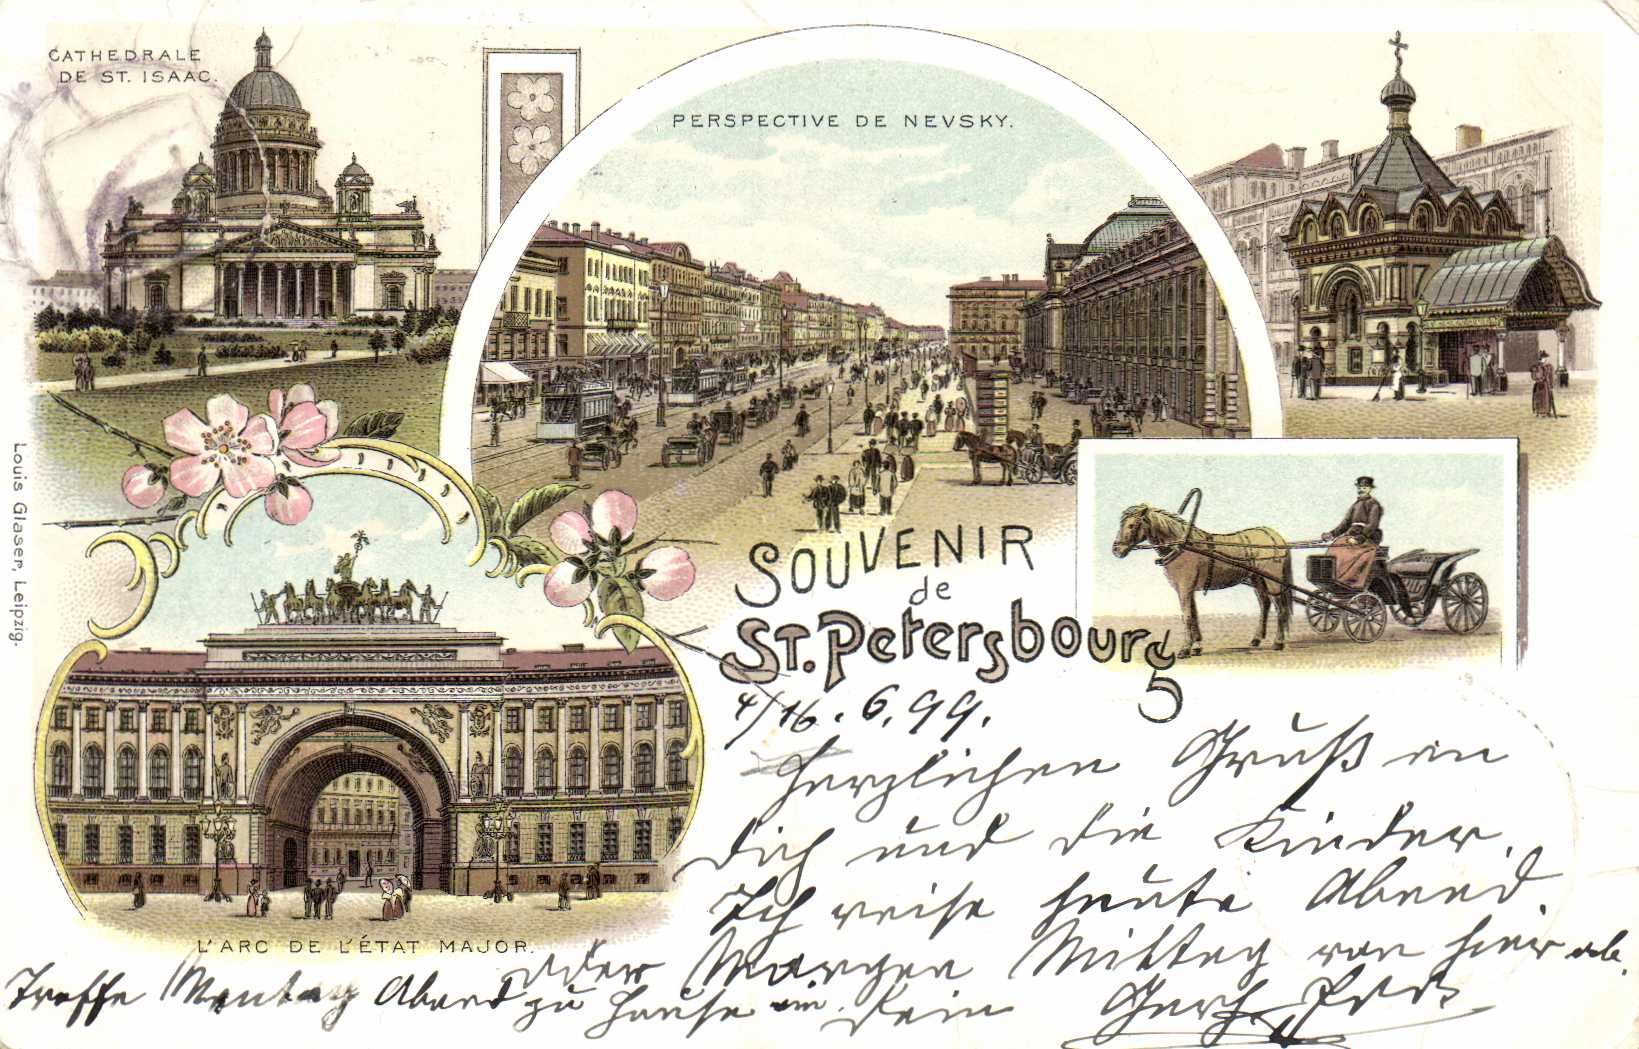 CATHEDRALE
DE ST. ISAAC.
PERSPECTIVE DE NEVSKY.
Louis Glaser, Leipzig.
SOUVENIR
de
ST. Petersbourg
4/16. 6. 99.
Herzlichen Gruß an
Dich und die Kinder.
Ich reise heute Abend
oder Morgen Mittag von hier ab.
Treffe Montag Abend zu Hause ein. Dein
L'ARC DE L'ÉTAT MAJOR.